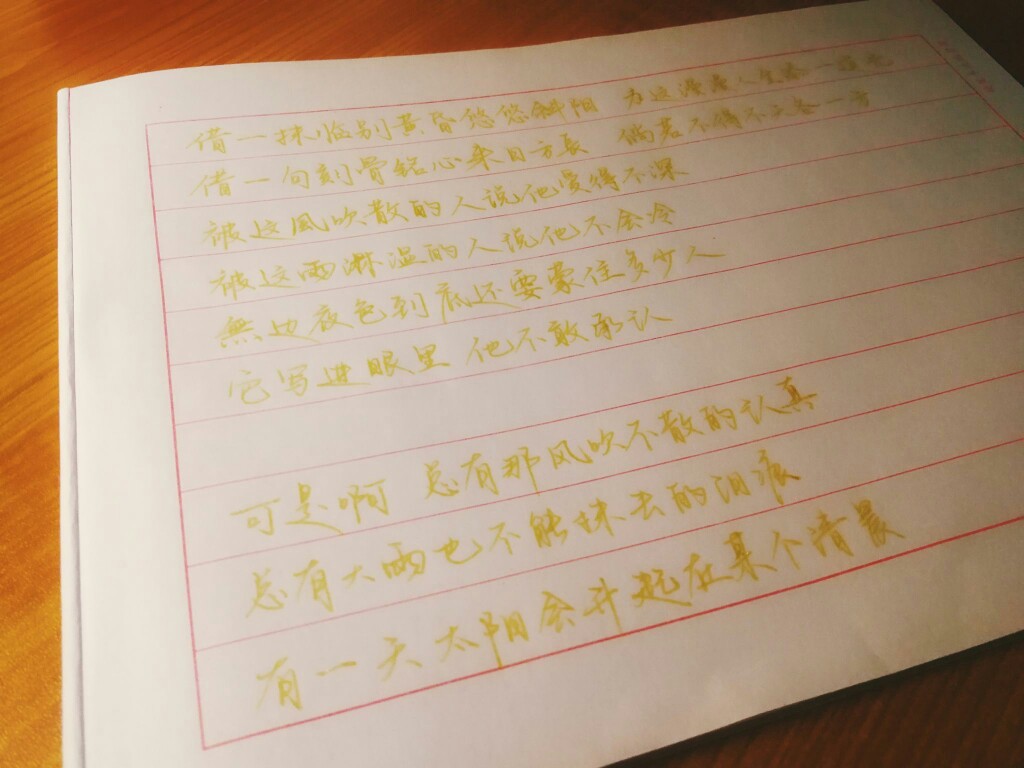 借一抹临别黄昏悠悠斜阳 为这漫漫人生添一道光
借一句刻骨铭心来日方长 倘若不得不天各一方
被这风吹散的人说他爱得不深
被这雨淋湿的人说他不会冷
無边夜色到底还要蒙住多少人
它写进眼里 他不敢承认
可是啊 总有那风吹不散的认真
总有大雨也不能抹去的泪痕
有一天太阳会升起在某个清晨